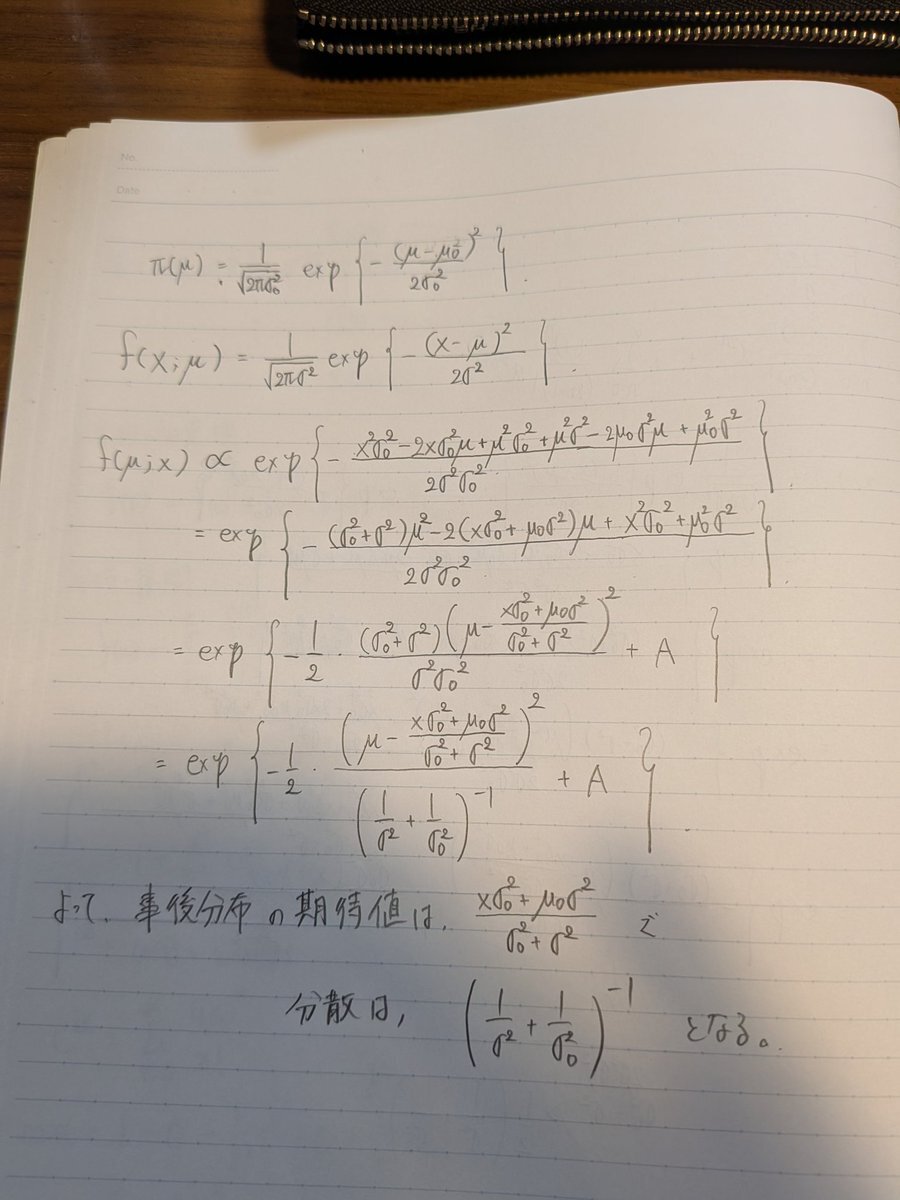 No.
Date
π(μ) = 1/√(2πσ₀²) exp { - (μ-μ₀²)² / 2σ₀² }.
f(x;μ) = 1/√(2πσ²) exp { - (x-μ)² / 2σ² }.
f(μ;x) ∝ exp { - (x²σ₀² - 2xσ₀²μ + μ²σ₀² + μ²σ² - 2μ₀σ²μ + μ₀²σ²) / 2σ²σ₀² }.
= exp { - ((σ₀²+σ²)μ² - 2(xσ₀²+μ₀σ²)μ + x²σ₀² + μ₀²σ²) / 2σ²σ₀² }.
= exp { - 1/2 · (σ₀²+σ²)(μ - (xσ₀²+μ₀σ²)/(σ₀²+σ²))² / σ²σ₀² + A }
= exp { - 1/2 · (μ - (xσ₀²+μ₀σ²)/(σ₀²+σ²))² / (1/σ² + 1/σ₀²)⁻¹ + A }.
よって、事後分布の期待値は、 (xσ₀²+μ₀σ²)/(σ₀²+σ²) で
分散は、 (1/σ² + 1/σ₀²)⁻¹ となる。